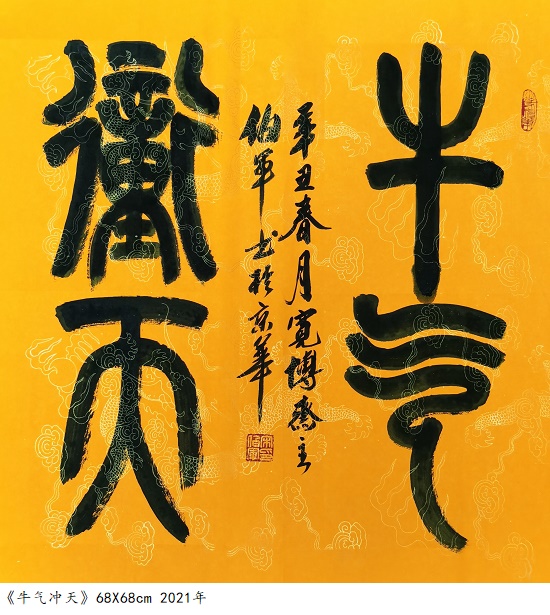 牛气
辛丑春月寬博齋主
伯軍书於京華
衝天
《牛气冲天》68X68cm 2021年